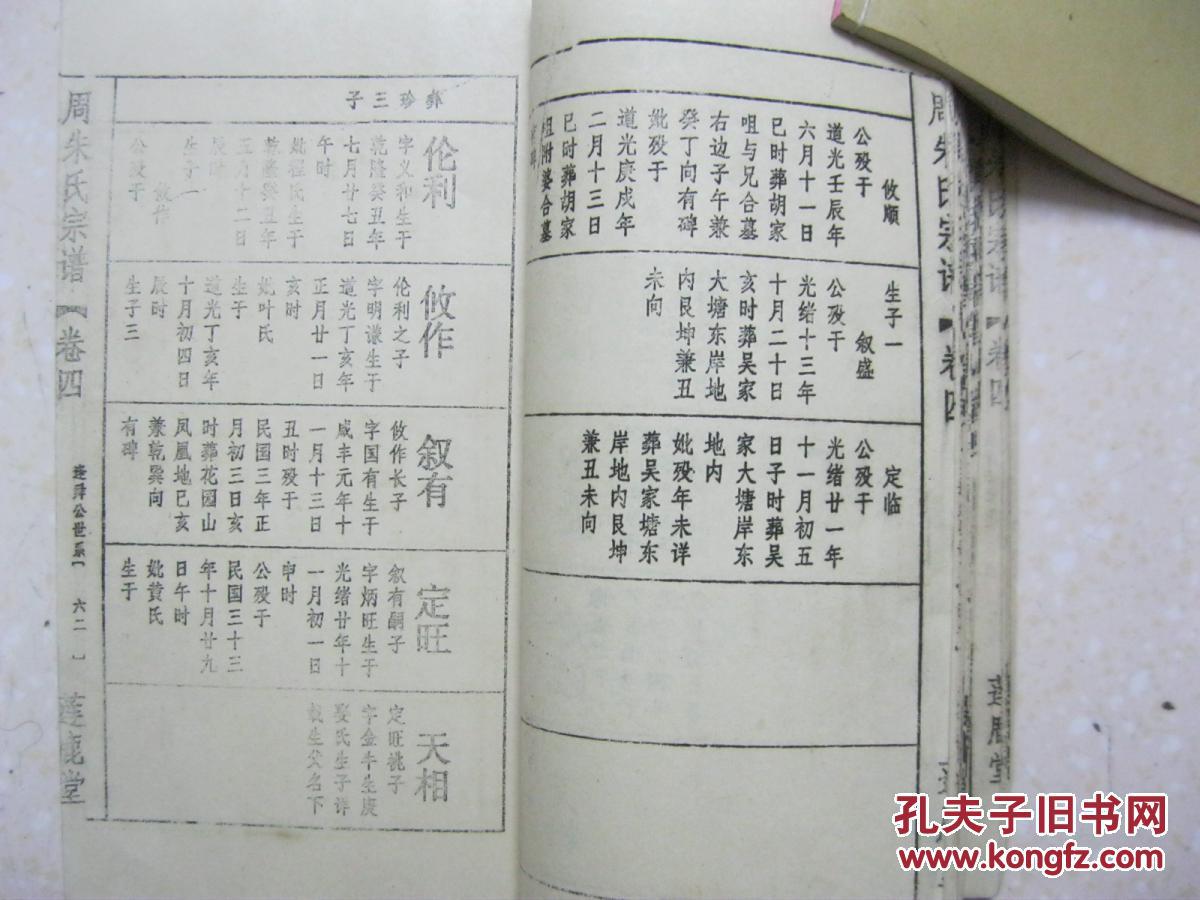 攸顺
公殁于
道光壬辰年
六月十一日
巳时葬胡家
咀与兄合墓
右边子午兼
癸丁向有碑
妣殁于
道光庚戌年
二月十三日
巳时葬胡家
咀附婆合墓
生子一
叙盛
公殁于
光绪十三年
十月二十日
亥时葬吴家
大塘东岸地
内艮坤兼丑
未向
定临
公殁于
光绪廿一年
十一月初五
日子时葬吴
家大塘岸东
地内
妣殁年未详
葬吴家塘东
岸地内艮坤
兼丑未向
彝珍三子
伦利
字义和生于
乾隆癸丑年
七月廿七日
午时
妣程氏生于
乾隆癸丑年
五月十二日
辰时
生子一
攸作
公殁于
攸作
伦利之子
字明谦生于
道光丁亥年
正月廿一日
亥时
妣叶氏
生于
道光丁亥年
十月初四日
辰时
生子三
叙有
攸作长子
字国有生于
咸丰元年十
一月十三日
丑时殁于
民国三年正
月初三日亥
时葬花园山
凤凰地己亥
兼乾巽向
有碑
定旺
叙有嗣子
字炳旺生于
光绪廿年十
一月初一日
申时
公殁于
民国三十三
年十月廿九
日午时
妣黄氏
生于
天相
定旺祧子
字金牛生庚
娶氏生子详
载生父名下
周朱氏宗谱
卷四
公世系
六二
莲鹿堂
孔夫子旧书网
www.kongfz.com